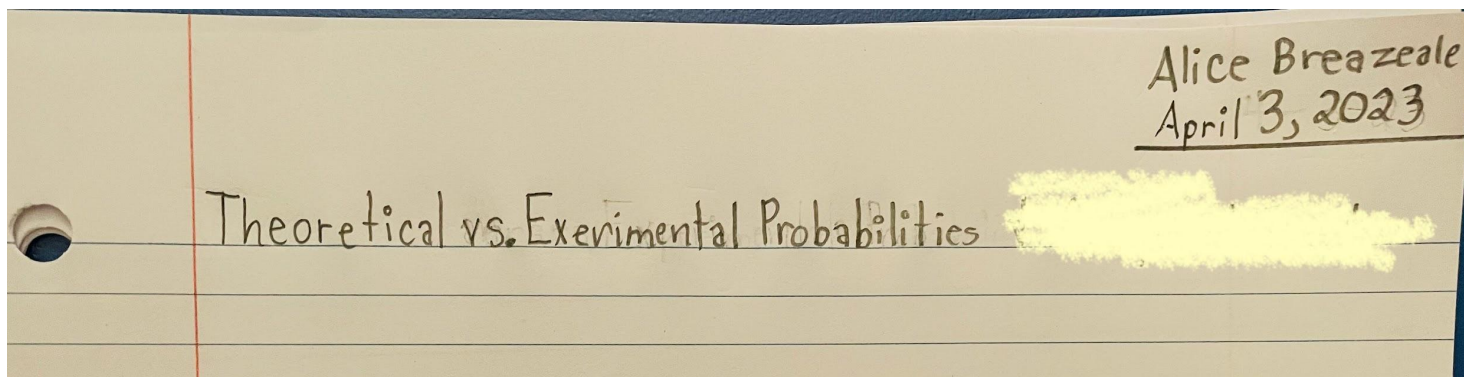 Alice Breazeale
April 3, 2023
Theoretical vs. Exerimental Probabilities